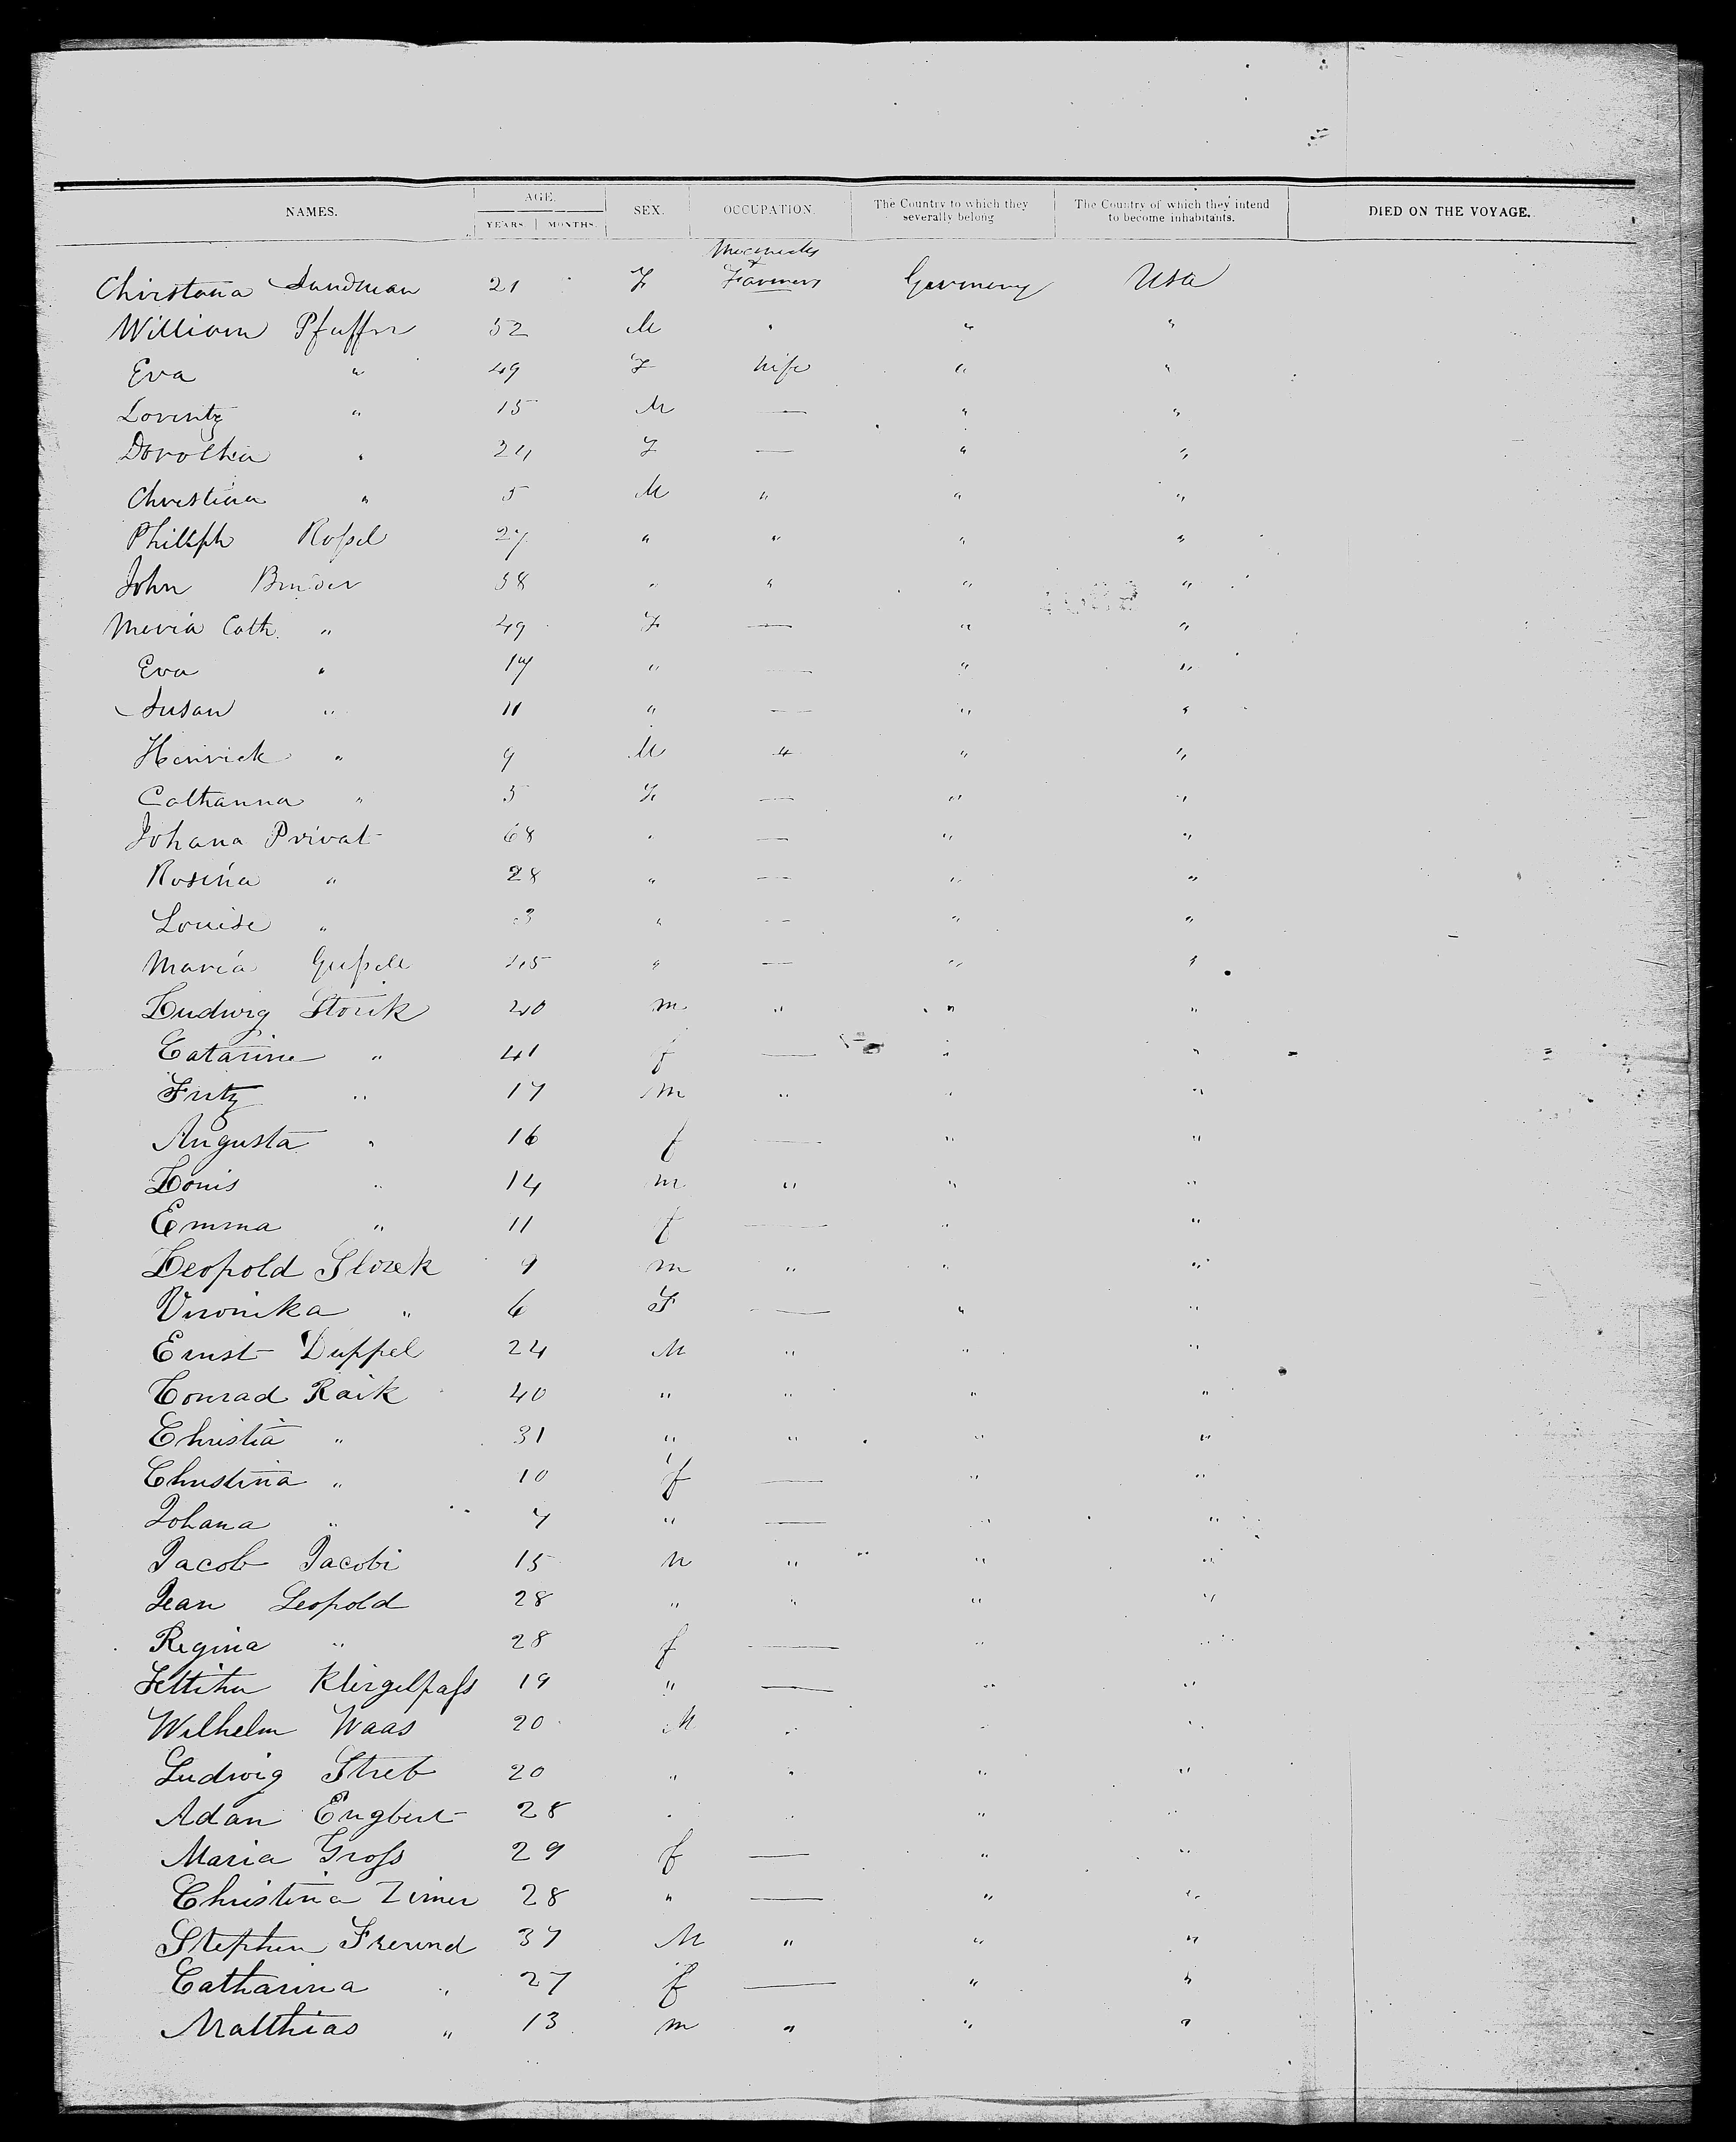 NAMES. AGE. YEARS MONTHS. SEX. OCCUPATION. The Country to which they severally belong The Country of which they intend to become inhabitants. DIED ON THE VOYAGE.
Mechanicks
Christana Sandman 21 F + Farmers Germeny Usa
William Pfuffer 52 M " " "
Eva " 49 F Wife " "
Lorentz " 15 M — " "
Dorothea " 24 F — " "
Christina " 5 M " " "
Phillph Roſsel 27 " " " "
John Bruder 38 " " " "
Meria Cath. " 49 F — " "
Eva " 17 " — " "
Susan " 11 " — " "
Henrick " 9 M " " "
Cathanna " 5 F — " "
Johana Privat 68 " — " "
Rosina " 28 " — " "
Louise " 3 " — " "
Maria Guſsell 45 " — " "
Ludwig Storik 40 m " " "
Catarine " 41 f — " "
Fritz " 17 m " " "
Augusta " 16 f — " "
Louis " 14 m " " "
Emma " 11 f — " "
Leopold Storek 9 m " " "
Veronika " 6 F — " "
Ernst Duppel 24 M " " "
Conrad Raik 40 " " " "
Christia " 31 " " " "
Christina " 10 f — " "
Johana " 7 " — " "
Jacob Jacobi 15 M " " "
Jean Leopold 28 " " " "
Regina " 28 f — " "
Klingelpaſs 19 " — " "
Wilhelm Waas 20 M " " "
Ludwig Streb 20 " " " "
Adan Engbert 28 " " " "
Maria Groſs 29 f — " "
Christina Zimer 28 " — " "
Stephen Freund 37 M " " "
Catharina " 27 f — " "
Matthias " 13 m " " "